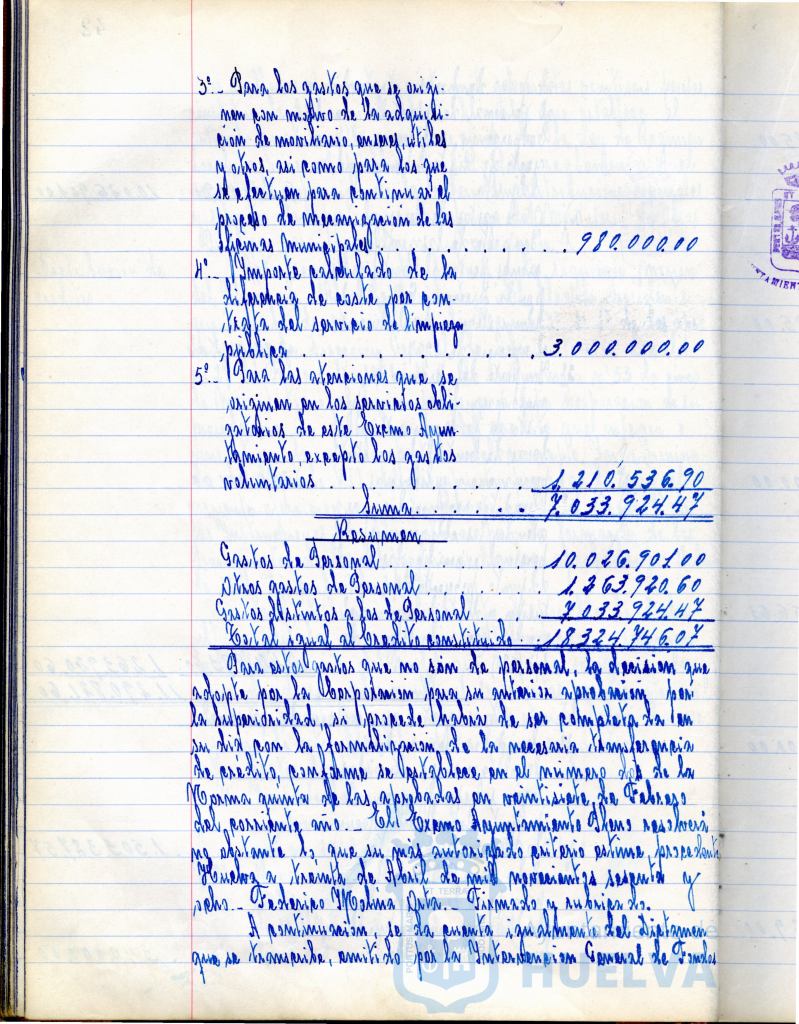 3º.- Para los gastos que se origi-
nen con motivo de la adquisi-
ción de moviliario, enseres, útiles
y otros, asi como para los que
se efectuen para continuar el
proceso de mecanización de las
Oficinas Municipales . . . . . . . . 980.000.00
4º.- Importe calculado de la
diferencia de coste por con-
trata del servicio de limpieza
pública . . . . . . . . . . 3.000.000.00
5º.- Para las atenciones que se
originen en los servicios obli-
gatorios de este Excmo Ayun-
tamiento, excepto los gastos
voluntarios . . . . . . 1.210.536.90
Suma . . . . . . . 7.033.924.47
Resumen
Gastos de Personal . . . . . . 10.026.901.00
Otros gastos de Personal . . . . . 1.263.920.60
Gastos distintos a los de Personal . . . 7.033.924.47
Total igual al Credito constituido . . 18.324.746.07
Para estos gastos que no són de personal, la decision que
adopte por la Corporacion para su ulterior aprobacion por
la Superioridad, si procede habrá de ser completada en
su dia, con la formalización de la necesaria transferencia
de crédito, conforme se establece en el numero dos de la
Norma quinta de las aprobadas en veintisiete de Febrero
del corriente año.- El Excmo Ayuntamiento Pleno resolverá
no obstante lo que su más autorizado criterio estime procedente
Huelva a treinta de Abril de mil novecientos sesenta y
ocho.- Federico Molina Orta.- Firmado y rubricado.
A continuación, se da cuenta igualmente del Dictamen
que se transcribe, emitido por la Intervencion General de Fondos
HUELVA